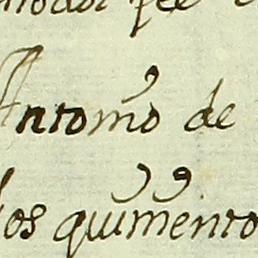 Antonio de
los quiniento